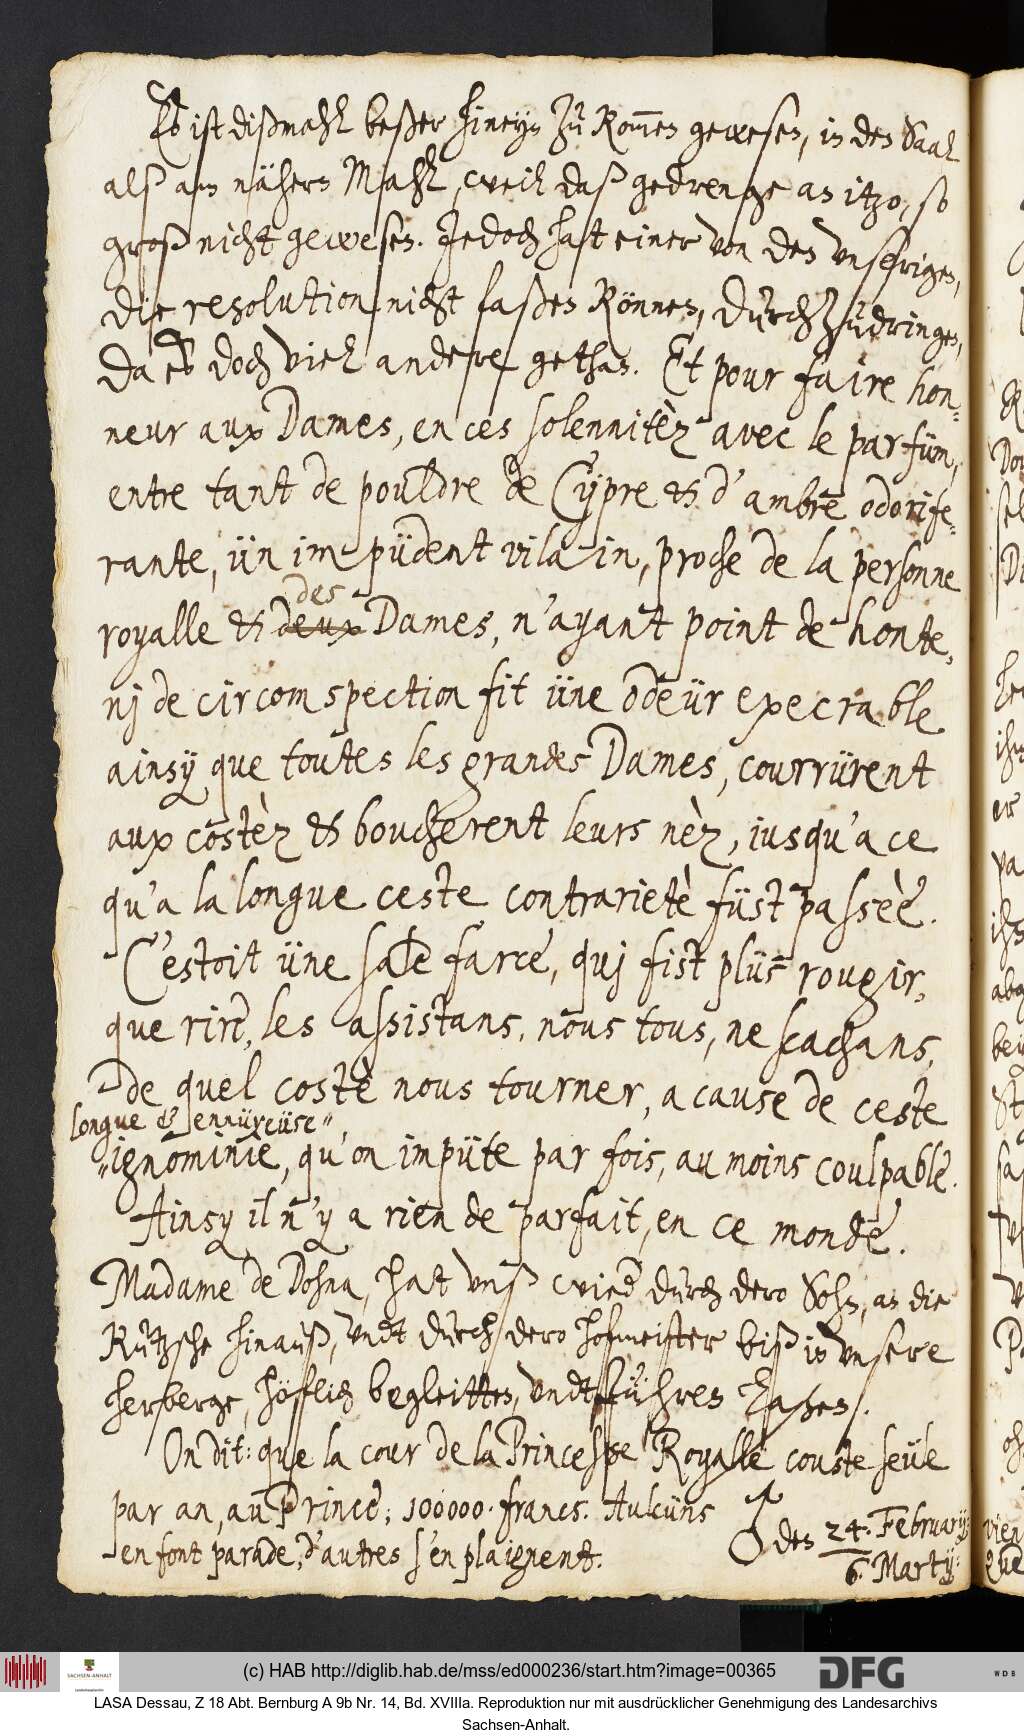 Es ist dißmahl beßer hineyn zu kommen gewesen, in den Saal
alß am nähern Mahl, weil daß gedrenge an itzo, so
groß nicht gewesen. Jedoch hat einer von den unserigen,
die resolution nicht faßen können, durchzudringen,
da es doch viel andere gethan. Et pour faire hon-
neur aux Dames, en ces solennitèz avec le parfüm,
entre tant de pouldre de Cypre & d'ambre odorife-
rante, ün impüdent vilain, proche de la personne
des
royalle & deux Dames, n'ayant point de honte,
nj de circomspection fit üne odeür execrable
ainsÿ que toutes les grandes Dames, courrürent
aux costèz & boucherent leurs nèz, iusqu'a ce
qu'a la longue ceste contrarietè füst passèe.
C'estoit üne sale farce, quj fist plüs rougir,
que rire, les assistans, nous tous, ne scachans,
de quel costè nous tourner, a cause de ceste
longue & ennüyeüse
ignominie, qu'on impüte par fois, au moins coulpable.
Ainsy il n'y a rien de parfait, en ce monde.
Madame de Dohna, hat unß wied durch dero Sohn, an die
Kutzsche hinauß, undt durch dero hofmeister biß in unsere
herberge, höfflich begleitten, undt führen laßen.
On dit: que la cour de la Princesse Royalle couste seüle
par an, au Prince; 100000 francs. Aulcüns
en font parade, d'autres s'en plaignent.
♂ den 24. Februarij:
6. Martij:
(c) HAB http://diglib.hab.de/mss/ed000236/start.htm?image=00365
SACHSEN-ANHALT
DFG
WDB
LASA Dessau, Z 18 Abt. Bernburg A 9b Nr. 14, Bd. XVIIIa. Reproduktion nur mit ausdrücklicher Genehmigung des Landesarchivs
Sachsen-Anhalt.